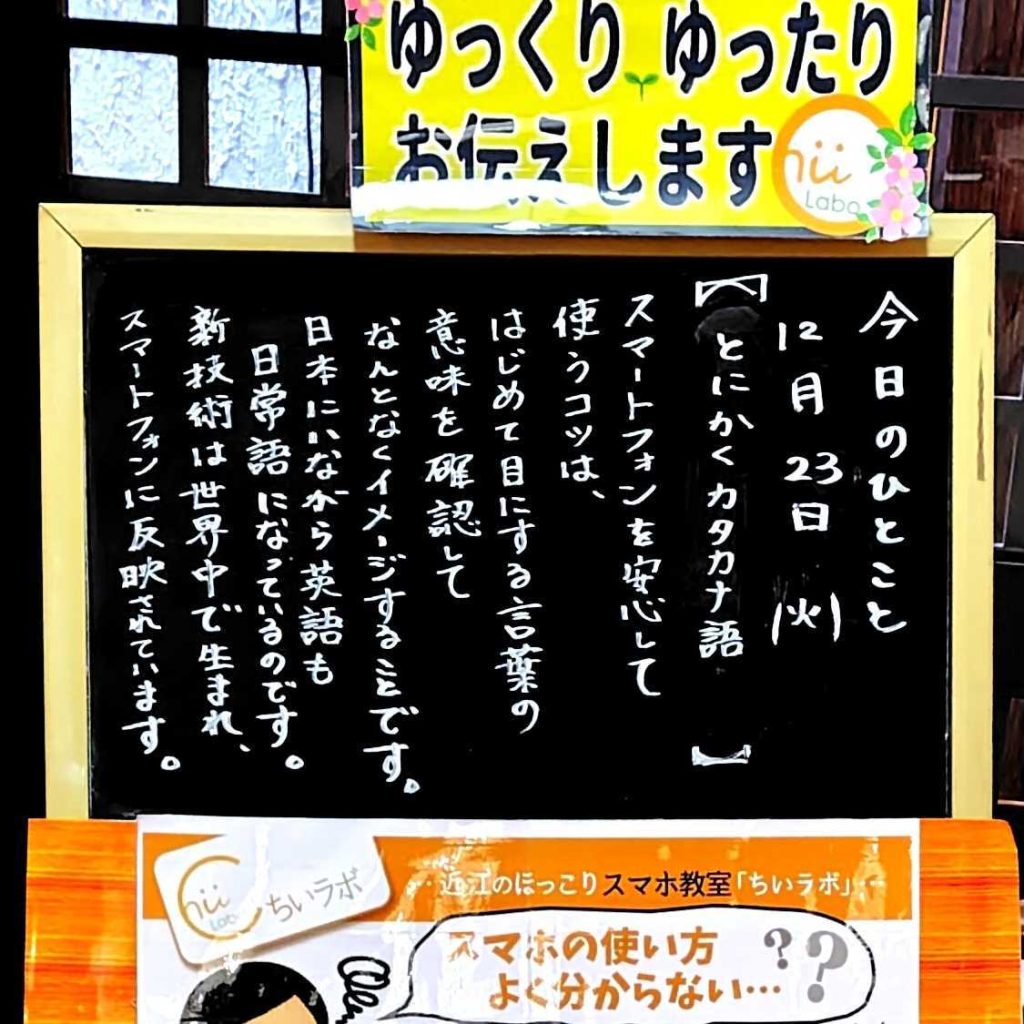 ゆっくり ゆったり
お伝えします
Labo
今日のひとこと
12月23日(火)
【とにかくカタカナ語】
スマートフォンを安心して
使うコツは、
はじめて目にする言葉の
意味を確認して
なんとなくイメージすることです。
日本にいながら英語も
日常語になっているのです。
新技術は世界中で生まれ、
スマートフォンに反映されています。
Labo
ちいラボ
…近江のほっこりスマホ教室「ちいラボ」…
スマホの使い方
よく分からない…
??